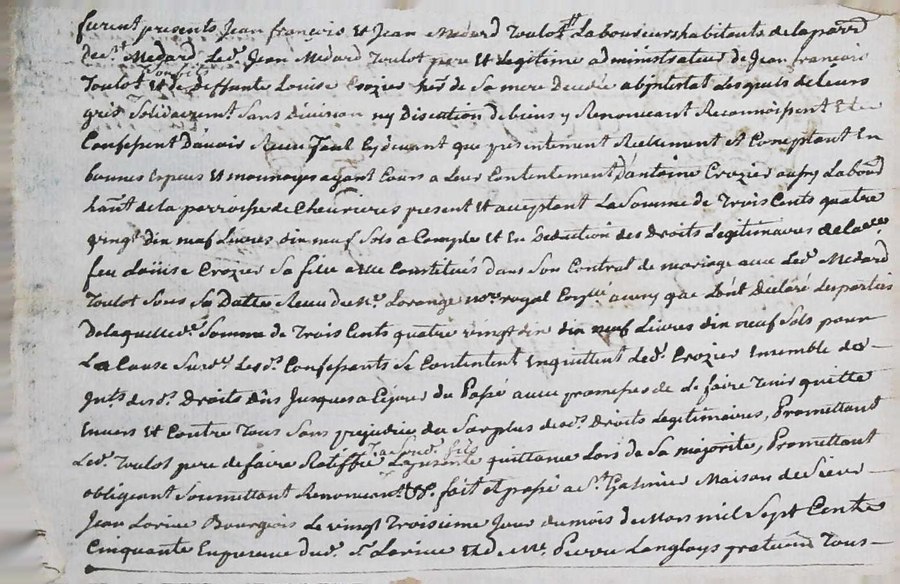 furent presents Jean françois et Jean Medard Toulot Laboureurs habitants de la parr
de St Medard Led. Jean Medard Toulot pere et Legitime administrateur de Jean francois
Son fils
Toulot et de deffunte Louise Crozier de Sa mere Decedée abjntestat Lesquels de Leurs
gres Solidairemt Sans division ny Discution de biens y Renonceant Reconnoissent et
Confessent D'avoir Receu Tant Cydevant que presentement Reellement et Comptant En
bonnes Especes et monnoyes ayant Cours a Leur Contentement D'antoine Crozier aussy Labour
hant de la parroisse de Chevrieres present et acceptant La Somme de Trois Cents quatre
vingt dix neuf Livres dix neuf Sols a Compte et En Deduction des Droits Legitimaires de lad.
feu Loüise Crozier Sa fille a elle Constitués dans Son Contrat de mariage avec Led. Medard
Toulot Sous Sa Datte Receu Me Lorange nore royal ainsy que L'ont Declaré Les parties
De laquelle d. Somme de Trois Cents quatre vingt dix neuf Livres dix neuf Sols pour
La Cause Susd. Lesd. Confessants Se Contentent Enquittent Led. Crozier Ensemble des
Jnts desd. Droits dûs Jusques a Cejour du Passé avec promesses de Le faire Tenir quitte
Envers et Contre Tous Sans prejudice du Surplus desd. Droits Legitimaires, Promettant
a Sond. fils
Led. Toulot pere de faire Ratiffier La presente quittance Lors de Sa majorite, Promettant
obligeant Soumettant Renonceant &c. fait et passé a St Galmier Maison de Sieur
Jean Lorine Bourgeois Le vingt Troisieme Jour du mois de Mars mil Sept Cents
Cinquante En presence dud. Sr Lorine et de Me Pierre Langloys praticien Tous